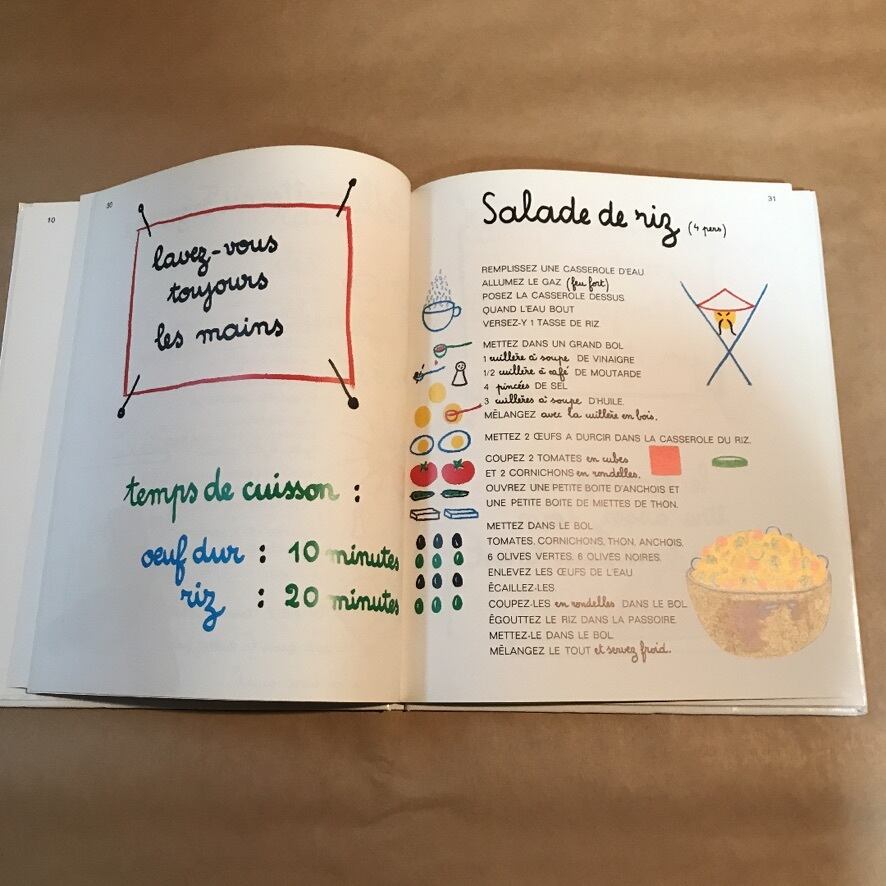 10
30
lavez-vous
toujours
les mains
temps de cuisson :
œuf dur : 10 minutes
riz : 20 minutes
31
Salade de riz (4 pers)
REMPLISSEZ UNE CASSEROLE D'EAU
ALLUMEZ LE GAZ (feu fort)
POSEZ LA CASSEROLE DESSUS.
QUAND L'EAU BOUT
VERSEZ-Y 1 TASSE DE RIZ
METTEZ DANS UN GRAND BOL
1 cuillère à soupe DE VINAIGRE
1/2 cuillère à café DE MOUTARDE
4 pincées DE SEL
3 cuillères à soupe D'HUILE.
MÉLANGEZ avec la cuillère en bois.
METTEZ 2 ŒUFS A DURCIR DANS LA CASSEROLE DU RIZ.
COUPEZ 2 TOMATES en cubes
ET 2 CORNICHONS en rondelles.
OUVREZ UNE PETITE BOITE D'ANCHOIS ET
UNE PETITE BOITE DE MIETTES DE THON.
METTEZ DANS LE BOL
TOMATES, CORNICHONS, THON, ANCHOIS,
6 OLIVES VERTES, 6 OLIVES NOIRES.
ENLEVEZ LES ŒUFS DE L'EAU
ÉCAILLEZ-LES.
COUPEZ-LES en rondelles DANS LE BOL
ÉGOUTTEZ LE RIZ DANS LA PASSOIRE
METTEZ-LE DANS LE BOL
MÊLANGEZ LE TOUT et servez froid.